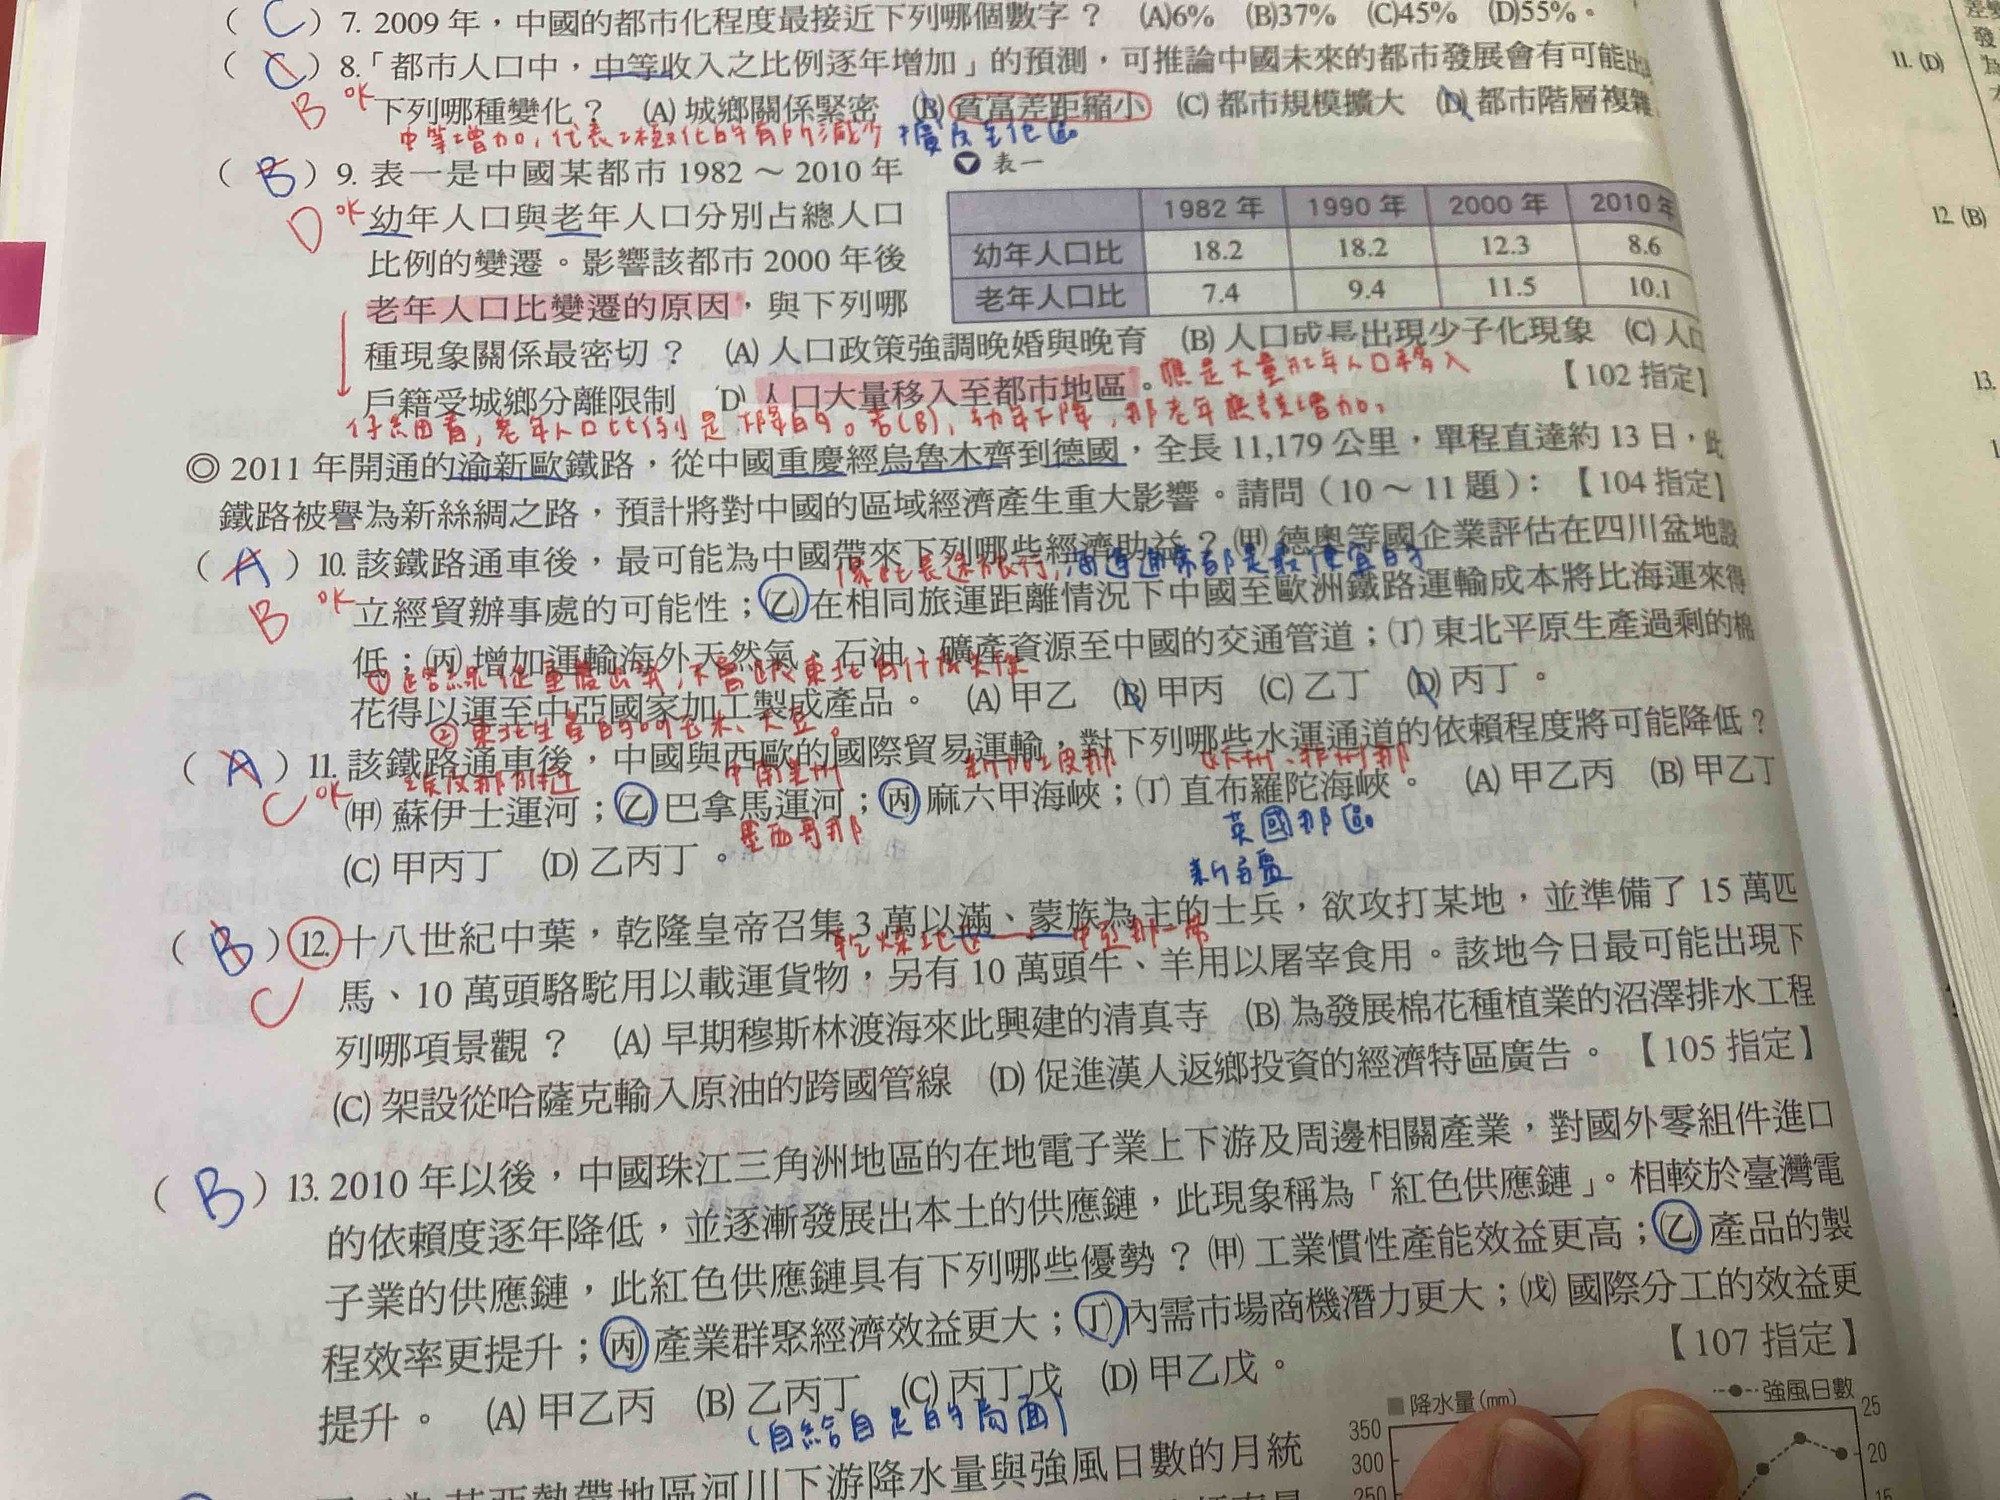 ( C ) 7. 2009 年，中國的都市化程度最接近下列哪個數字？ (A)6% (B)37% (C)45% (D)55%。
( C ) 8.「都市人口中，中等收入之比例逐年增加」的預測，可推論中國未來的都市發展會有可能出
B OK 下列哪種變化？ (A) 城鄉關係緊密 (B) 貧富差距縮小 (C) 都市規模擴大 (D) 都市階層複雜
中等增加，代表2極化的有所減少
( B ) 9. 表一是中國某都市 1982 ～ 2010 年
D OK 幼年人口與老年人口分別占總人口
比例的變遷。影響該都市 2000 年後
老年人口比變遷的原因，與下列哪
表一
1982 年 1990 年 2000 年 2010 年
幼年人口比 18.2 18.2 12.3 8.6
老年人口比 7.4 9.4 11.5 10.1
種現象關係最密切？ (A) 人口政策強調晚婚與晚育 (B) 人口成長出現少子化現象 (C) 人口
戶籍受城鄉分離限制 (D) 人口大量移入至都市地區。 【102 指定】
應是大量壯年人口移入
仔細看，老年人口比例是下降的。若(B)，幼年下降，那老年應該增加。
◎ 2011 年開通的渝新歐鐵路，從中國重慶經烏魯木齊到德國，全長 11,179 公里，單程直達約 13 日，此
鐵路被譽為新絲綢之路，預計將對中國的區域經濟產生重大影響。請問（10 ～ 11 題）： 【104 指定】
( A ) 10. 該鐵路通車後，最可能為中國帶來下列哪些經濟助益？(甲) 德奧等國企業評估在四川盆地設
海運通常都是最便宜的
B OK 立經貿辦事處的可能性；(乙) 在相同旅運距離情況下中國至歐洲鐵路運輸成本將比海運來得
低；(丙) 增加運輸海外天然氣、石油、礦產資源至中國的交通管道；(丁) 東北平原生產過剩的棉
花得以運至中亞國家加工製成產品。 (A) 甲乙 (B) 甲丙 (C) 乙丁 (D) 丙丁。
( A ) 11. 該鐵路通車後，中國與西歐的國際貿易運輸，對下列哪些水運通道的依賴程度將可能降低？
埃及那附近 中南美洲 新加坡那 歐洲、非洲那
C OK (甲) 蘇伊士運河；(乙) 巴拿馬運河；(丙) 麻六甲海峽；(丁) 直布羅陀海峽。 (A) 甲乙丙 (B) 甲乙丁
墨西哥那 英國那區
(C) 甲丙丁 (D) 乙丙丁。
新疆
( B ) 12. 十八世紀中葉，乾隆皇帝召集 3 萬以滿、蒙族為主的士兵，欲攻打某地，並準備了 15 萬匹
乾燥地區 中亞那一帶
C 馬、10 萬頭駱駝用以載運貨物，另有 10 萬頭牛、羊用以屠宰食用。該地今日最可能出現下
列哪項景觀？ (A) 早期穆斯林渡海來此興建的清真寺 (B) 為發展棉花種植業的沼澤排水工程
(C) 架設從哈薩克輸入原油的跨國管線 (D) 促進漢人返鄉投資的經濟特區廣告。 【105 指定】
( B ) 13. 2010 年以後，中國珠江三角洲地區的在地電子業上下游及周邊相關產業，對國外零組件進口
的依賴度逐年降低，並逐漸發展出本土的供應鏈，此現象稱為「紅色供應鏈」。相較於臺灣電
子業的供應鏈，此紅色供應鏈具有下列哪些優勢？(甲) 工業慣性產能效益更高；(乙) 產品的製
程效率更提升；(丙) 產業群聚經濟效益更大；(丁) 內需市場商機潛力更大；(戊) 國際分工的效益更
提升。 (A) 甲乙丙 (B) 乙丙丁 (C) 丙丁戊 (D) 甲乙戊。 【107 指定】
(自給自足的局面)
熱帶地區河川下游降水量與強風日數的月統
降水量(mm) 強風日數
350 25
300 20
250 15
11. (D)
12. (B)
13.